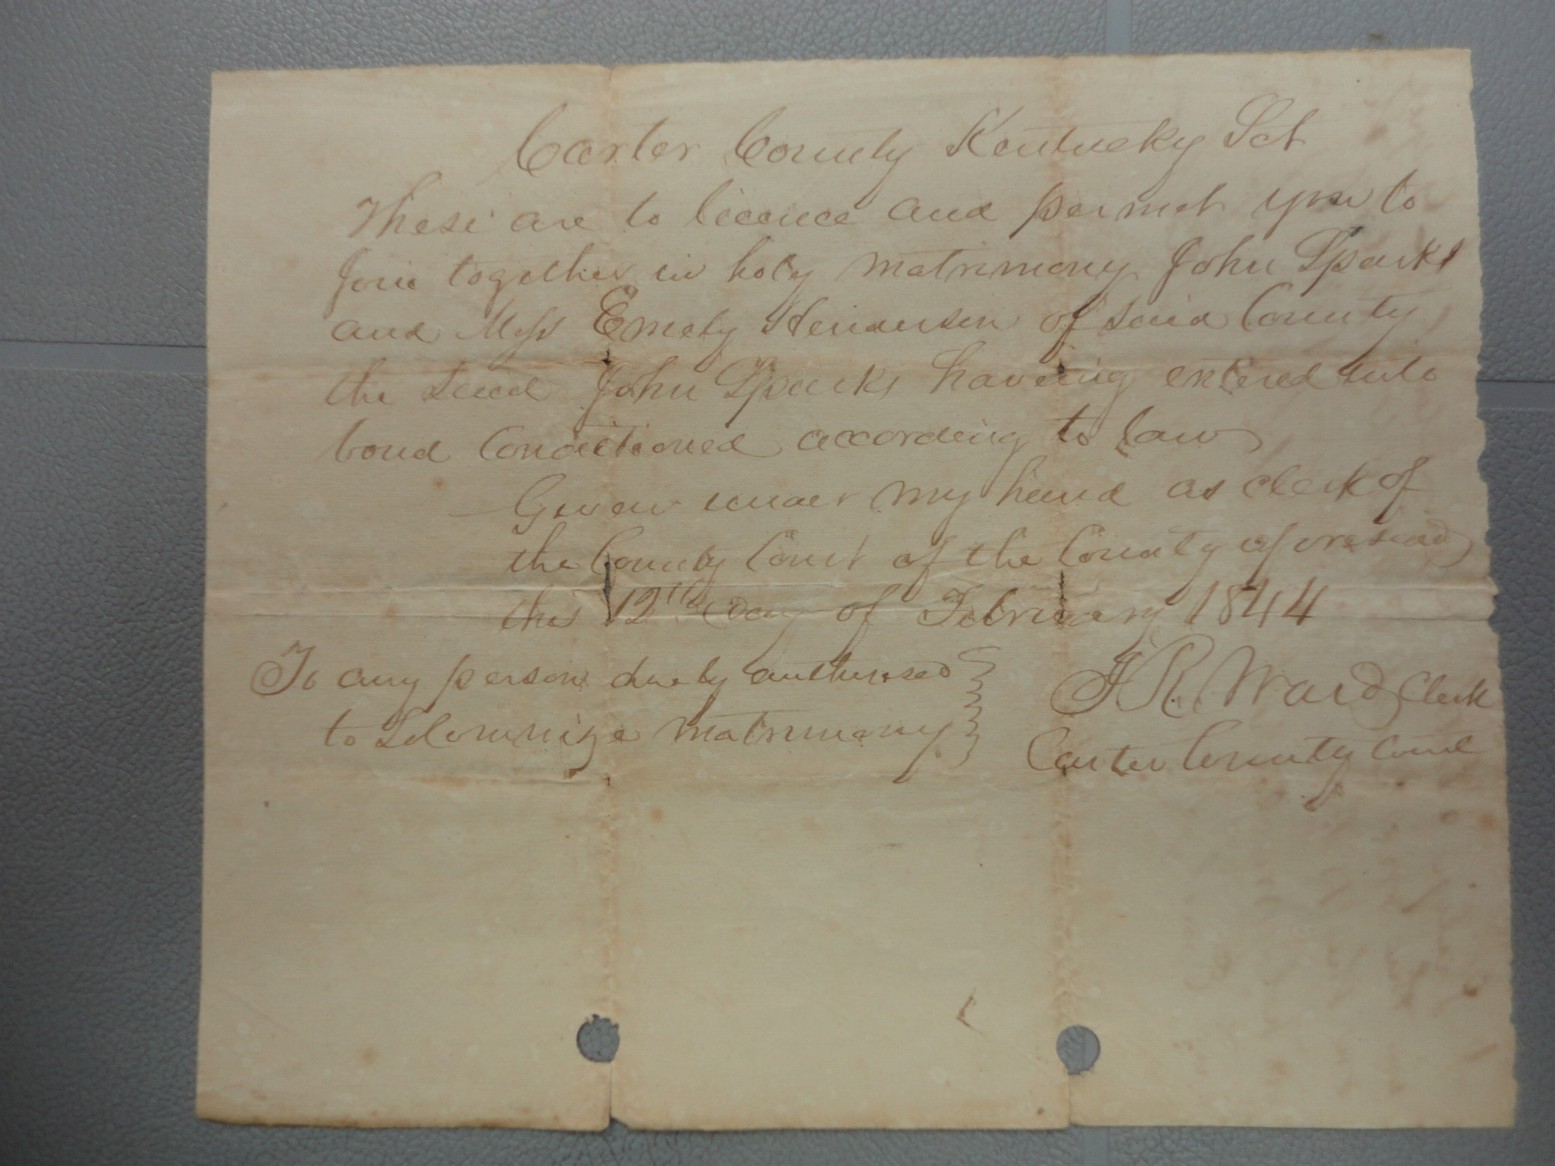 Carter County Kentucky Sct
These are to licence and permet you to
Join together in holy matrimony John Sparks
and Miss Emely Henderson of said County
the said John Sparks haveing entered into
bond Conditioned according to law
Given under my hand as clerk of
the County Court of the County aforesaid
this 12th day of February 1844
To any person duely authorised
to Solemnize matrimony
J R. Ward Clerk
Carter County Court